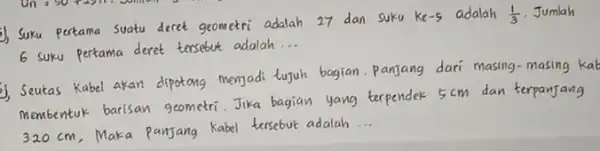 Un = 50 + 25n.
Suku pertama suatu deret geometri adalah 27 dan suku ke-5 adalah 1/3. Jumlah
6 suku pertama deret tersebut adalah ...
Seutas kabel akan dipotong menjadi tujuh bagian. Panjang dari masing-masing kab
membentuk barisan geometri. Jika bagian yang terpendek 5 cm dan terpanjang
320 cm, Maka panjang kabel tersebut adalah ...